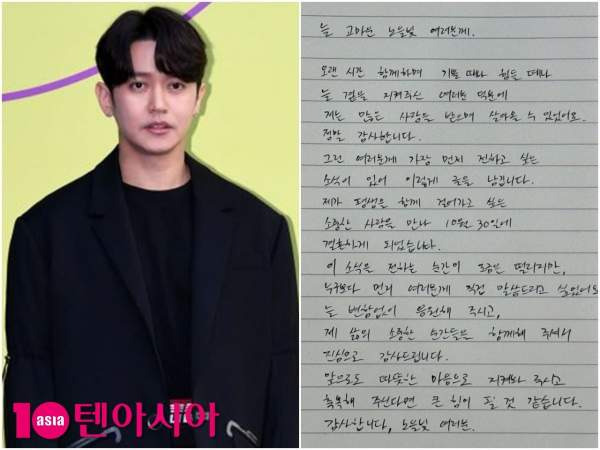 늘 고마운 노을빛 여러분께.
오랜 시간 함께하며 기쁠 때나 힘든 때나
늘 곁을 지켜주신 여러분 덕분에
저는 많은 사랑을 받으며 살아올 수 있었어요.
정말 감사합니다.
그런 여러분께 가장 먼저 전하고 싶은
소식이 있어 이렇게 글을 남깁니다.
제가 평생을 함께 걸어가고 싶은
소중한 사람을 만나 10월 30일에
결혼하게 되었습니다.
이 소식을 전하는 순간이 조금은 떨리지만,
누구보다 먼저 여러분께 직접 말씀드리고 싶었어요
늘 변함없이 응원해 주시고,
제 삶의 소중한 순간들을 함께해 주셔서
진심으로 감사드립니다.
앞으로도 따뜻한 마음으로 지켜봐 주시고
축복해 주신다면 큰 힘이 될 것 같습니다.
감사합니다, 노을빛 여러분.
10 asia 텐아시아